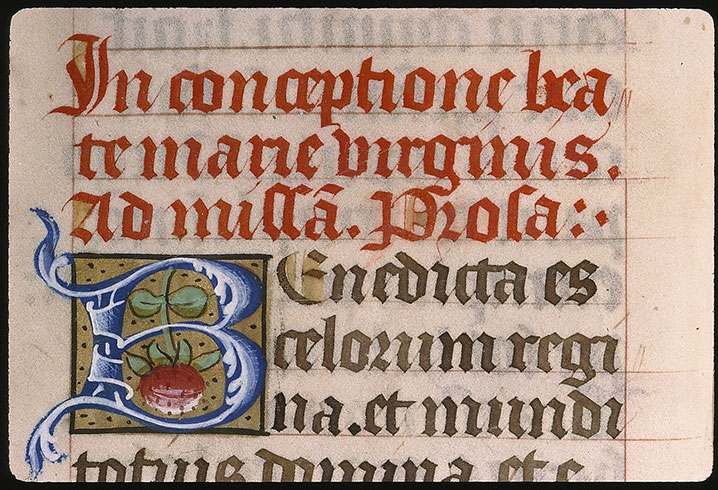 In conceptione bea
te marie virginis.
Ad missā. Prosa:·
BEnedicta es
celorum regi
na. et mundi
totius domina. et e